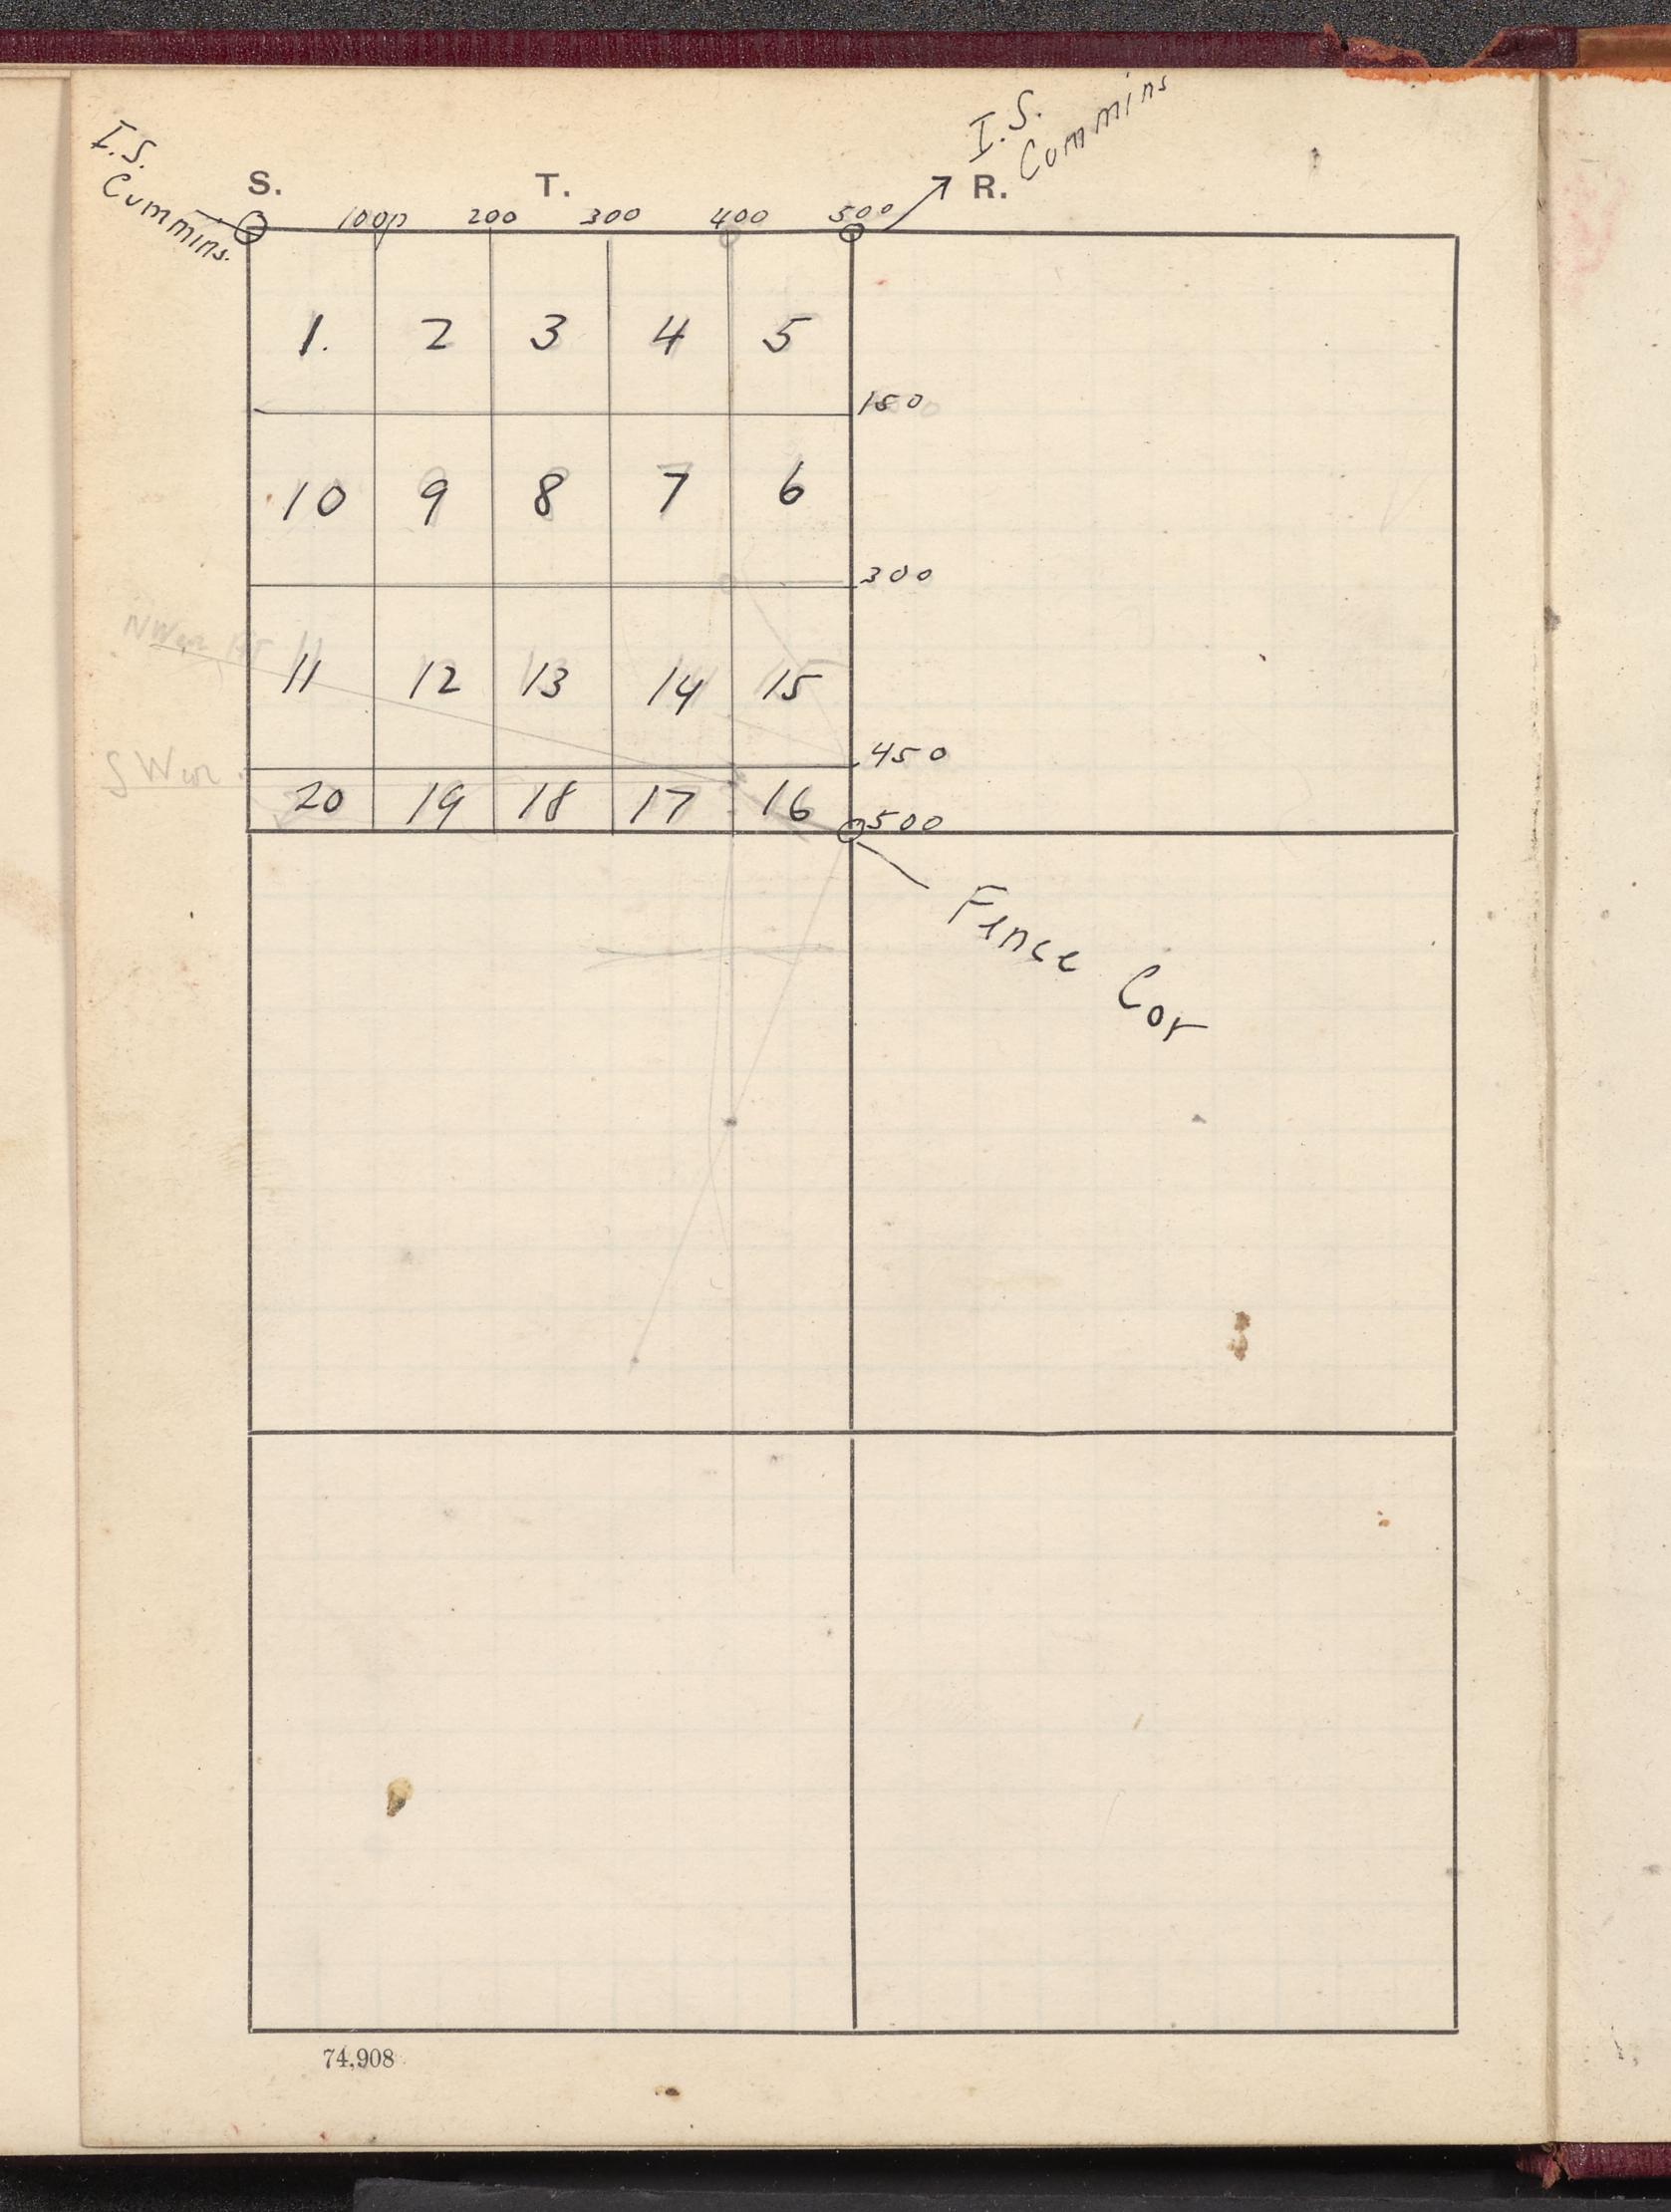 I.S.
Cummins.
I.S.
Cummins
S. T. R.
100 200 300 400 500
1. 2 3 4 5
150
10 9 8 7 6
300
11 12 13 14 15
450
20 19 18 17 16
500
Fence Cor
74,908